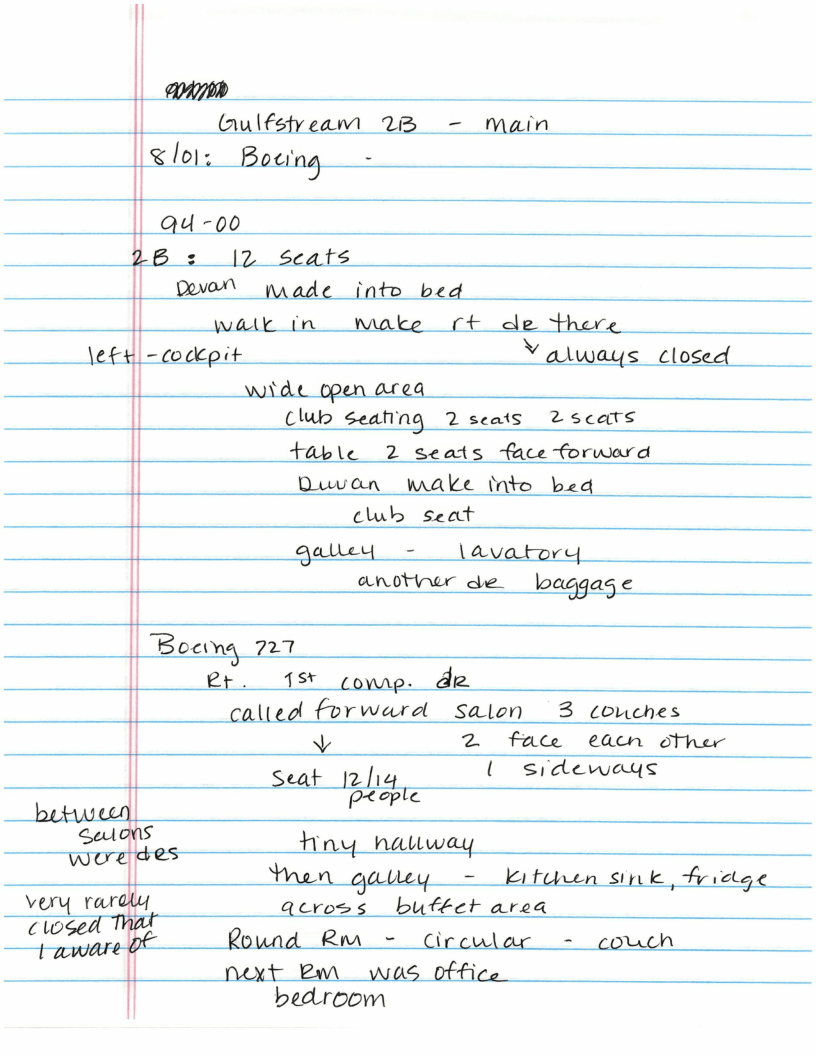 Gulfstream 2B - main
8/01: Boeing -
94-00
2B : 12 seats
Devan made into bed
walk in make rt dr there
left - cockpit ↓ always closed
wide open area
club seating 2 seats 2 seats
table 2 seats face forward
Duvan make into bed
club seat
galley - lavatory
another dr baggage
Boeing 727
Rt. 1st comp. dr
called forward salon 3 couches
↓ 2 face each other
Seat 12/14 1 sideways
people
between
salons
were drs
very rarely
closed that
I aware of
tiny hallway
then galley - kitchen sink, fridge
across buffet area
Round RM - circular - couch
next RM was office
bedroom